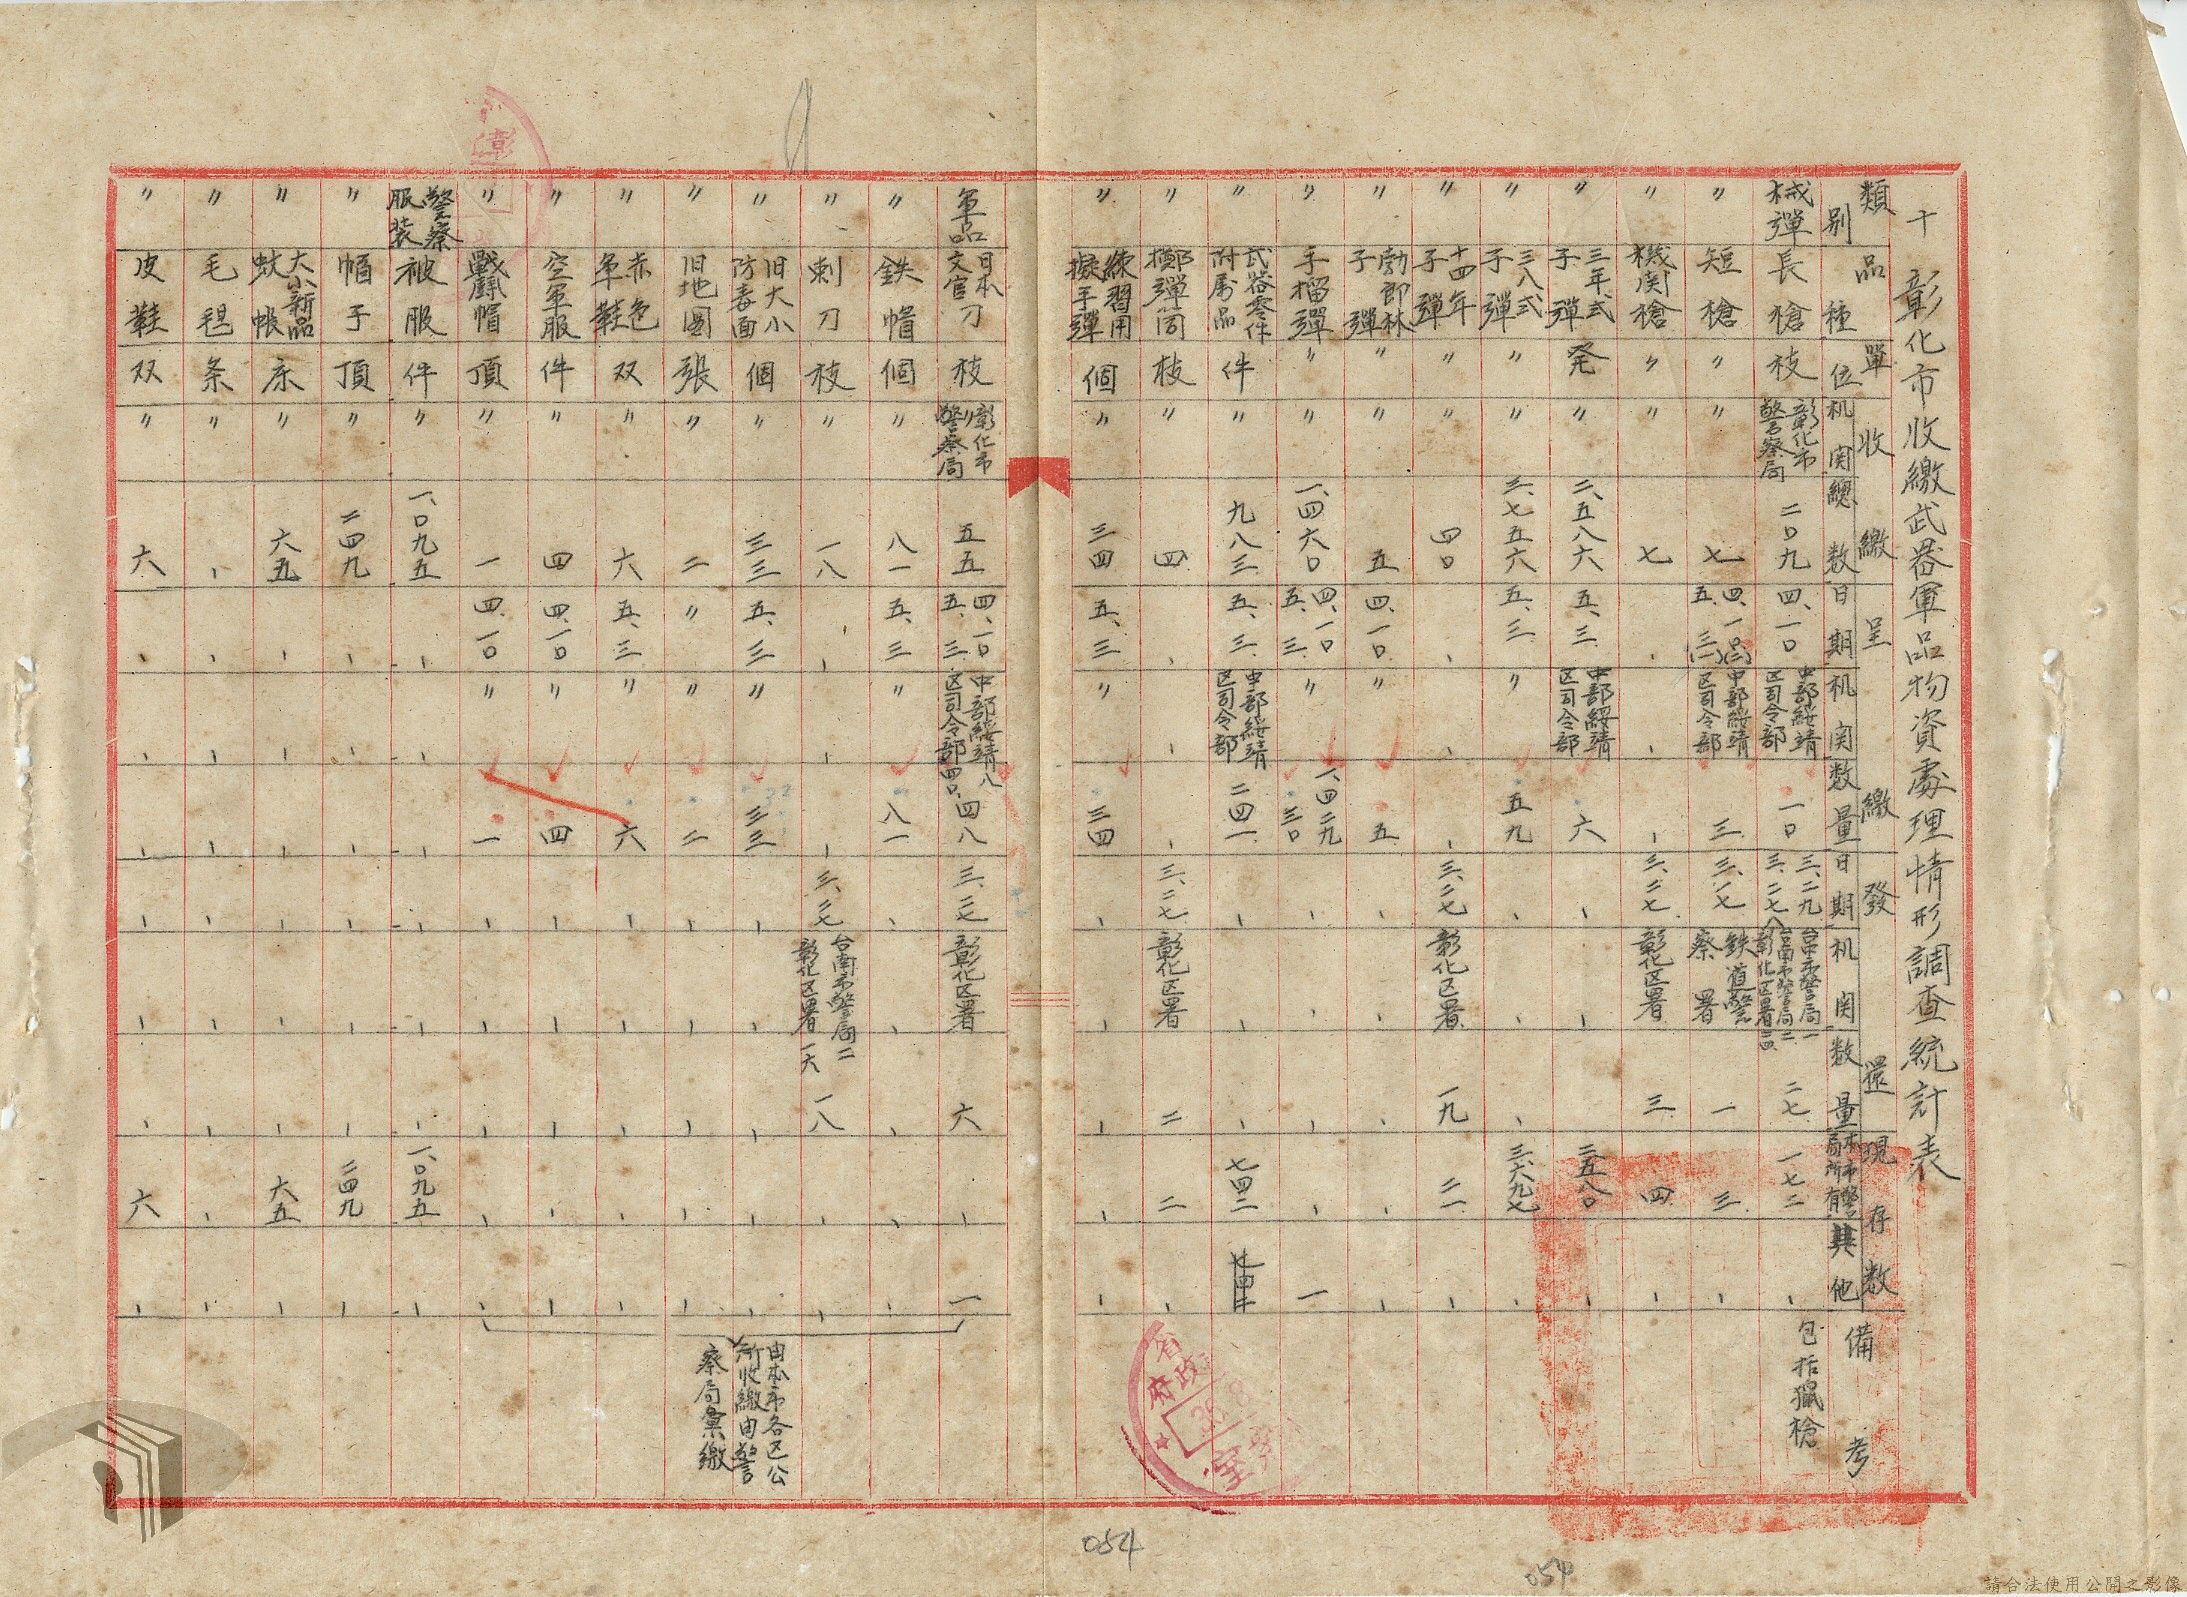 十 彰化市收繳武器軍品物資處理情形調查統計表
類別 品種 單位 收繳 机関 總数 呈繳 日期 机関 数量 發還 日期 机関 数量 現存数 本市警局所有 其他 備考
械彈 長槍 枝 彰化市警察局 二〇九 四、一〇 中部綏靖区司令部 一〇 三、二九 三、二七 台中市警局一 台南市警局二 彰化区署二四 二七 一七二 、 包括獵槍
〃 短槍 〃 〃 七 四、一〇(二) 五、三(一) 中部綏靖区司令部 三 三、一七 鉄道警察署 一 三 、
〃 機関槍 〃 〃 七 、 、 、 三、二七 彰化区署 三 四 、
〃 三年式子彈 発 〃 二、五八六 五、三 中部綏靖区司令部 六 、 、 、 二五八〇 、
〃 三八式子彈 〃 〃 三、七五六 五、三 〃 五九 、 、 、 三、六九七 、
〃 十四年子彈 〃 〃 四〇 、 、 、 三、二七 彰化区署 一九 二一 、
〃 勃郎林子彈 〃 〃 五 四、一〇 〃 五 、 、 、 、 、
〃 手榴彈 〃 〃 一、四六〇 四、一〇 五、三 〃 一、四二九 三〇 、 、 、 、 一
〃 武器零件附屬品 件 〃 九八三 五、三 中部綏靖区司令部 二四一 、 、 、 七四二
〃 擲彈筒 枝 〃 四 、 、 、 三、二七 彰化区署 二 二 、
〃 練習用擬手彈 個 〃 三四 五、三 〃 三四 、 、 、 、 、
軍品 日本刀文官刀 枝 彰化市警察局 五五 四、一〇 五、三 中部綏靖区司令部 八 四〇、 四八 三、二七 彰化区署 六 、 一
〃 鉄帽 個 〃 八一 五、三 〃 八一 、 、 、 、 、
〃 刺刀 枝 〃 一八 、 、 、 三、二七 台南市警局二 彰化区署一六 一八 、 、
〃 旧大小防毒面 個 〃 三三 五、三 〃 三三 、 、 、 、 、
〃 旧地圖 張 〃 二 〃 〃 二 、 、 、 、 、
〃 赤色軍鞋 双 〃 六 五、三 〃 六 、 、 、 、 、
〃 空軍服 件 〃 四 四、一〇 〃 四 、 、 、 、 、
〃 戰鬪帽 頂 〃 一 四、一〇 〃 一 、 、 、 、 、
由本市各区公所收繳由警察局彙繳
警察服装 被服 件 〃 一、〇九五 、 、 、 、 、 、 一、〇九五 、
〃 帽子 頂 〃 二四九 、 、 、 、 、 、 二四九 、
〃 大小新品蚊帳 床 〃 六五 、 、 、 、 、 、 六五 、
〃 毛毯 条 〃 、 、 、 、 、 、 、 、 、
〃 皮鞋 双 〃 六 、 、 、 、 、 、 六 、
省政府
054
054
請合法使用公開之影像